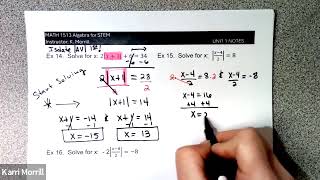 MATH 1513 Algebra for STEM
Instructor: K. Morrill
UNIT 1 NOTES
Isolate |AV| 1st!
Ex 14. Solve for x: 2|x+1|+6 = 34
-6 -6
2|x+1| = 28
2 2
Start Solving
|x+1| = 14
x+1 = -14 & x+1 = 14
-1 -1 -1 -1
x = -15 x = 13
Ex 15. Solve for x: |x-4/2| = 8
2· x-4/2 = 8·2 & x-4/2 = -8
x-4 = 16
+4 +4
x = 2
Ex 16. Solve for x: -2|x-4/2| = -8
Karri Morrill